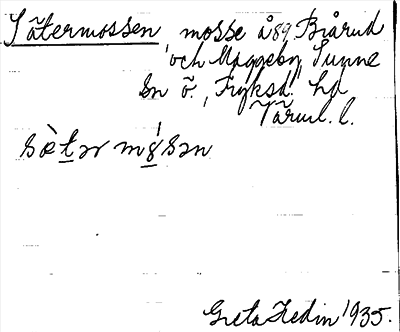 Sätermossen, mosse å 89 Bjårud
och Maggeby, Sunne
sn ö., Fryksd. hd
Värml. l.
sæ̀tər mósən
Greta Hedin 1935.